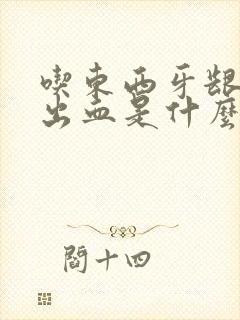 喫東西牙齦
出血是什麼
閻十四